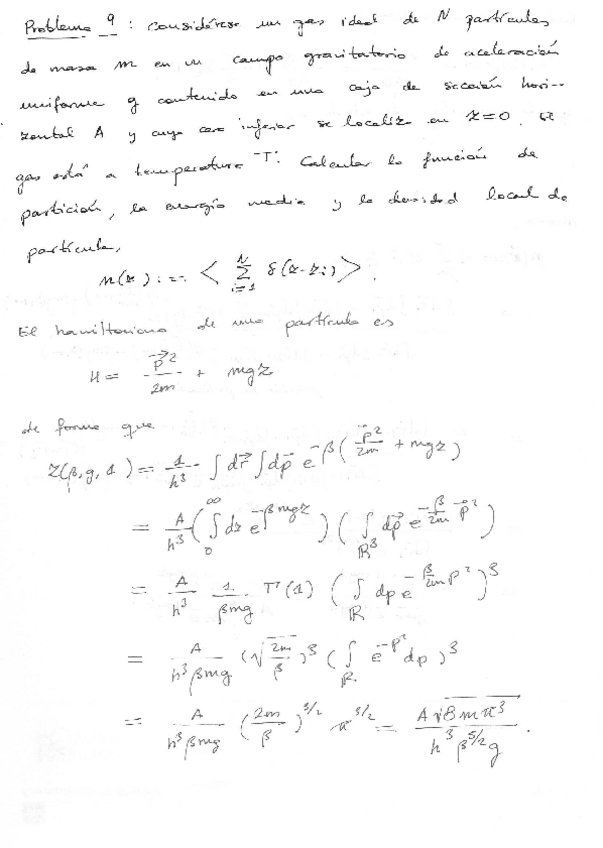 Problema 9 : Considérese un gas ideal de N partículas
de masa m en un campo gravitatorio de aceleración
uniforme g contenido en una caja de sección hori-
zontal A y cuya cara inferior se localiza en z=0. El
gas está a temperatura T. Calcular la función de
partición, la energía media y la densidad local de
partícula,
n(z) := < Σ_{i=1}^{N} δ(z-z_i) >.
El hamiltoniano de una partícula es
H = \vec{p}^2/2m + mgz
de forma que
Z(β,g,1) = 1/h^3 ∫ d\vec{r} ∫ d\vec{p} e^{-β(\vec{p}^2/2m + mgz)}
= A/h^3 (∫_0^∞ dz e^{-βmgz}) (∫_{ℝ^3} d\vec{p} e^{-β/2m \vec{p}^2})
= A/h^3 1/βmg Γ(1) (∫_ℝ dp e^{-β/2m p^2})^3
= A/h^3βmg (√(2m/β))^3 (∫_ℝ e^{-p^2} dp)^3
= A/h^3βmg (2m/β)^{3/2} π^{3/2} = A√(8mπ^3) / h^3 β^{5/2} g .